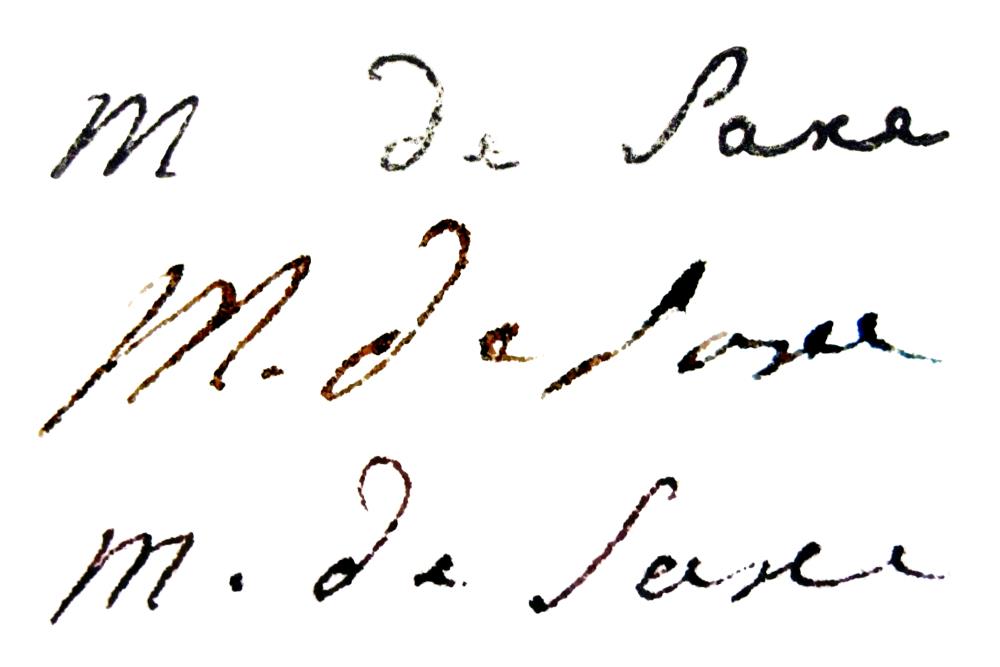 M de Saxe
M. de Saxe
M. de Saxe